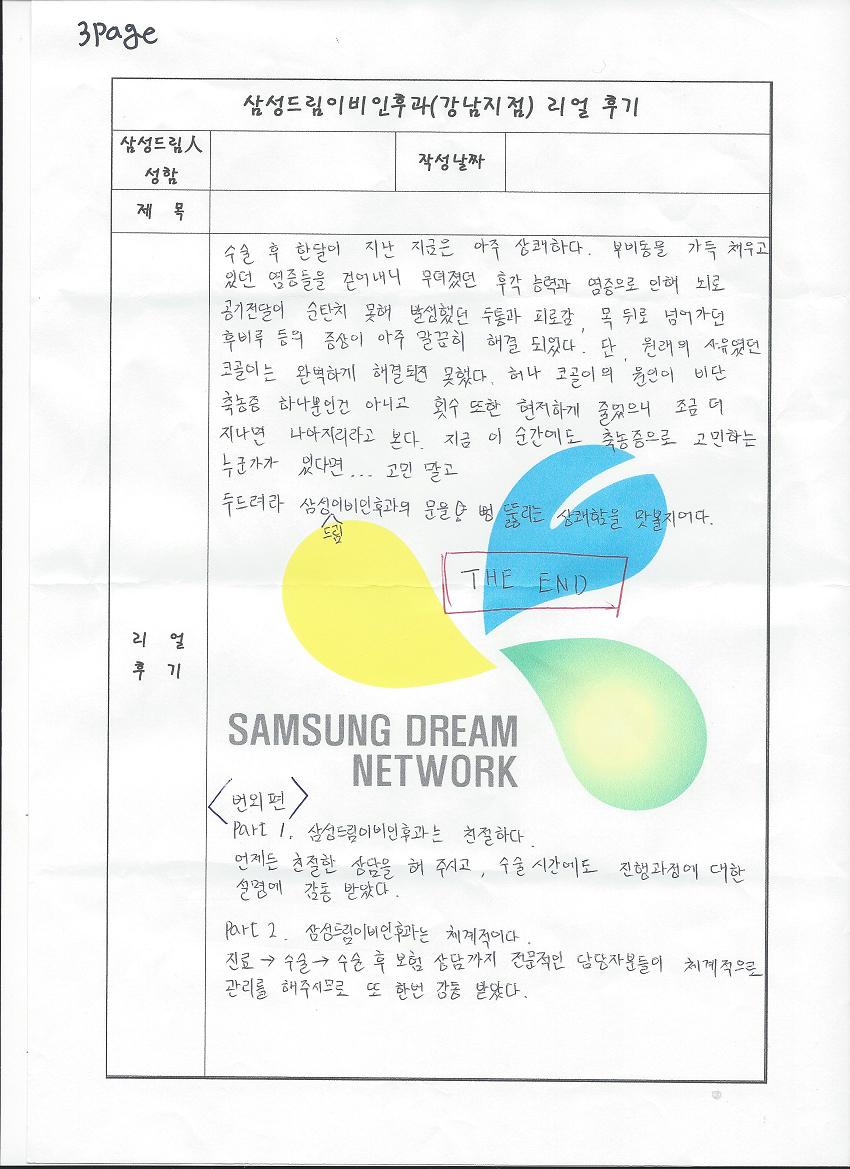 3page
삼성드림이비인후과(강남지점) 리얼 후기
삼성드림人
성함
작성날짜
제 목
수술 후 한달이 지난 지금은 아주 상쾌하다. 부비동을 가득 채우고
있던 염증들을 걷어내니 무뎌졌던 후각 능력과 염증으로 인해 뇌로
공기전달이 순탄치 못해 발생했던 두통과 피로감, 목 뒤로 넘어가던
후비루 등의 증상이 아주 말끔히 해결 되었다. 단, 원래의 사유였던
코골이는 완벽하게 해결되진 못했다. 허나 코골이의 원인이 비단
축농증 하나뿐인건 아니고 횟수 또한 현저하게 줄었으니 조금 더
지나면 나아지리라고 본다. 지금 이 순간에도 축농증으로 고민하는
누군가가 있다면... 고민 말고
두드려라 삼성드림이비인후과의 문을 뻥 뚫리는 상쾌함을 맛볼지어다.
THE END
리 얼
후 기
SAMSUNG DREAM
NETWORK
<번외편>
Part 1. 삼성드림이비인후과는 친절하다.
언제든 친절한 상담을 해 주시고, 수술 시간에도 진행과정에 대한
설명에 감동 받았다.
Part 2. 삼성드림이비인후과는 체계적이다.
진료 → 수술 → 수술 후 보험 상담까지 전문적인 담당자분들이 체계적으로
관리를 해주시므로 또 한번 감동 받았다.